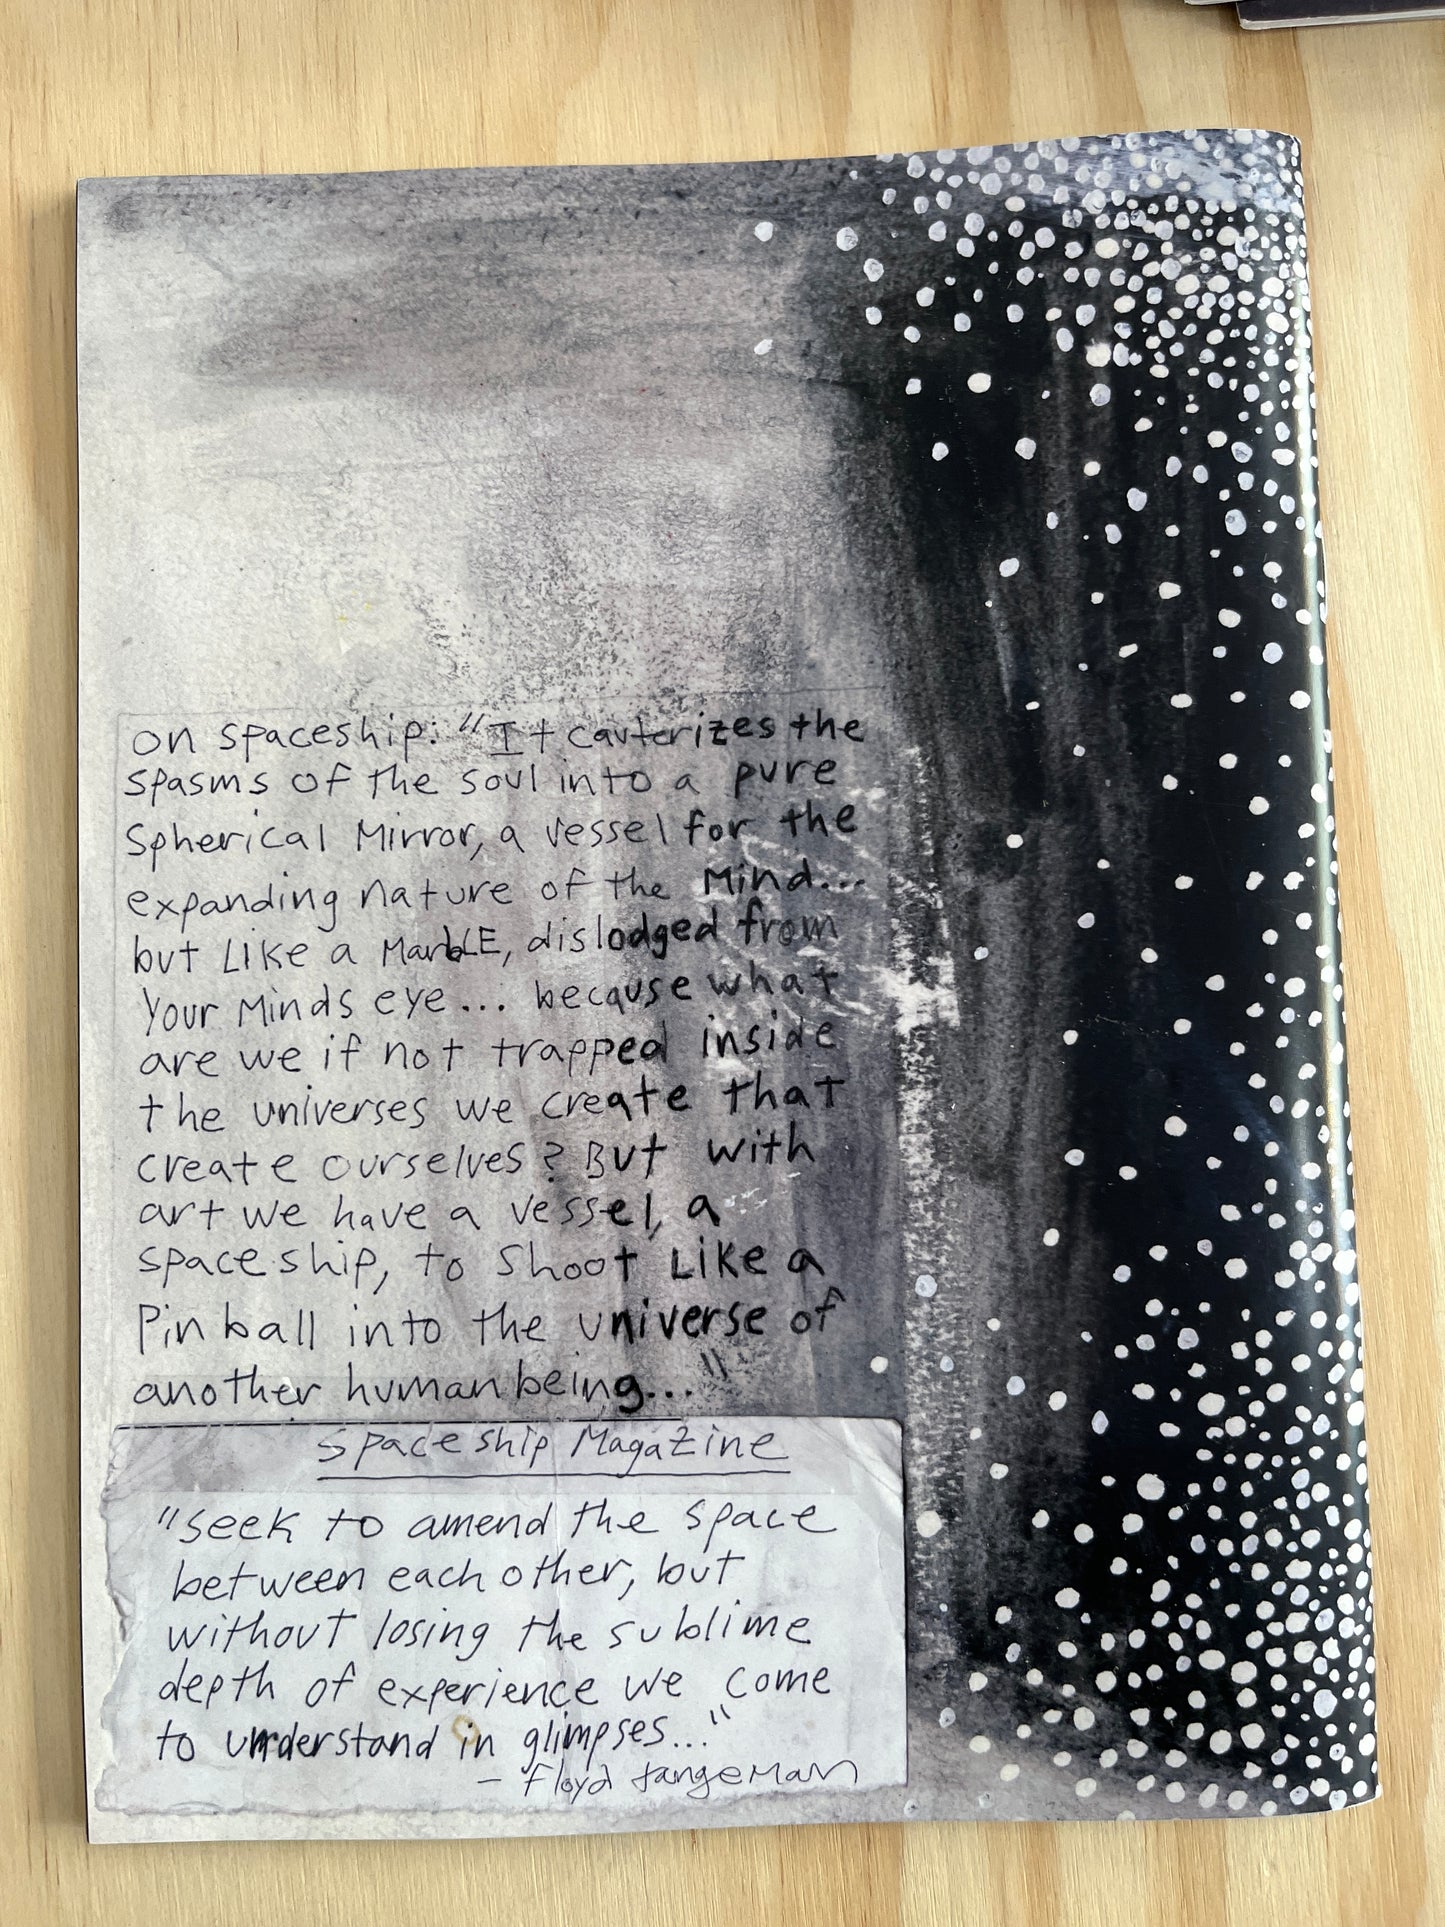 on spaceship: "It cauterizes the
spasms of the soul into a pure
spherical Mirror, a vessel for the
expanding nature of the Mind...
but Like a MarbLE, dislodged from
Your Minds eye... because what
are we if not trapped inside
the universes we create that
create ourselves? But with
art we have a vessel, a
spaceship, to shoot Like a
Pinball into the universe of
another human being..."
Spaceship Magazine
"seek to amend the space
between each other, but
without losing the sublime
depth of experience we come
to understand in glimpses..."
- Floyd tangeMan